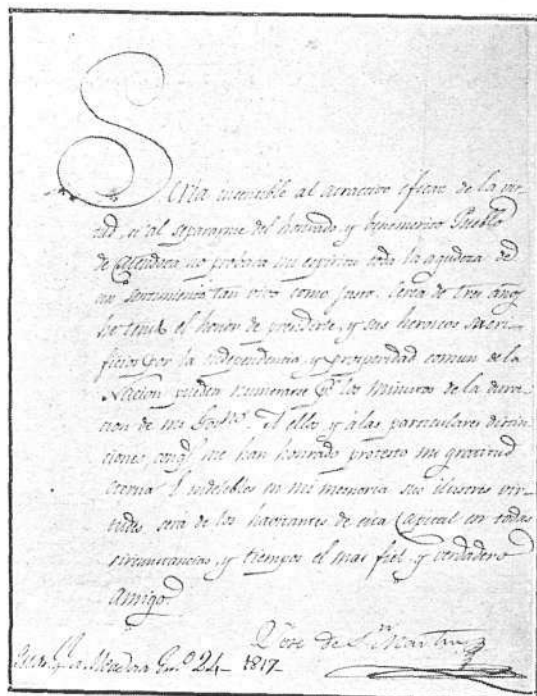 Seria insensible al atractivo efecto de la vir-
tud, si al separarme del honrado, y benemerito Pueblo
de Mendoza no probara mi espiritu toda la agudeza de
un sentimiento tan vivo como justo. Cerca de tres años
he tenido el honor de precidirle, y sus heroicos sacri-
ficios por la independencia, y prosperidad comun de la
Nacion pueden numerarse pr. los minutos de la dura-
cion de mi Govno. A ellos, y à las particulares distin-
ciones, conq.e me han honrado protesto mi gratitud
eterna è indelebles en mi memoria sus ilustres vir-
tudes será de los havitantes de esta Capital en todas
circunstancias, y tiempos el mas fiel, y verdadero
Amigo.
Jose de Sn. Martin
Mendoza En.o 24 1817